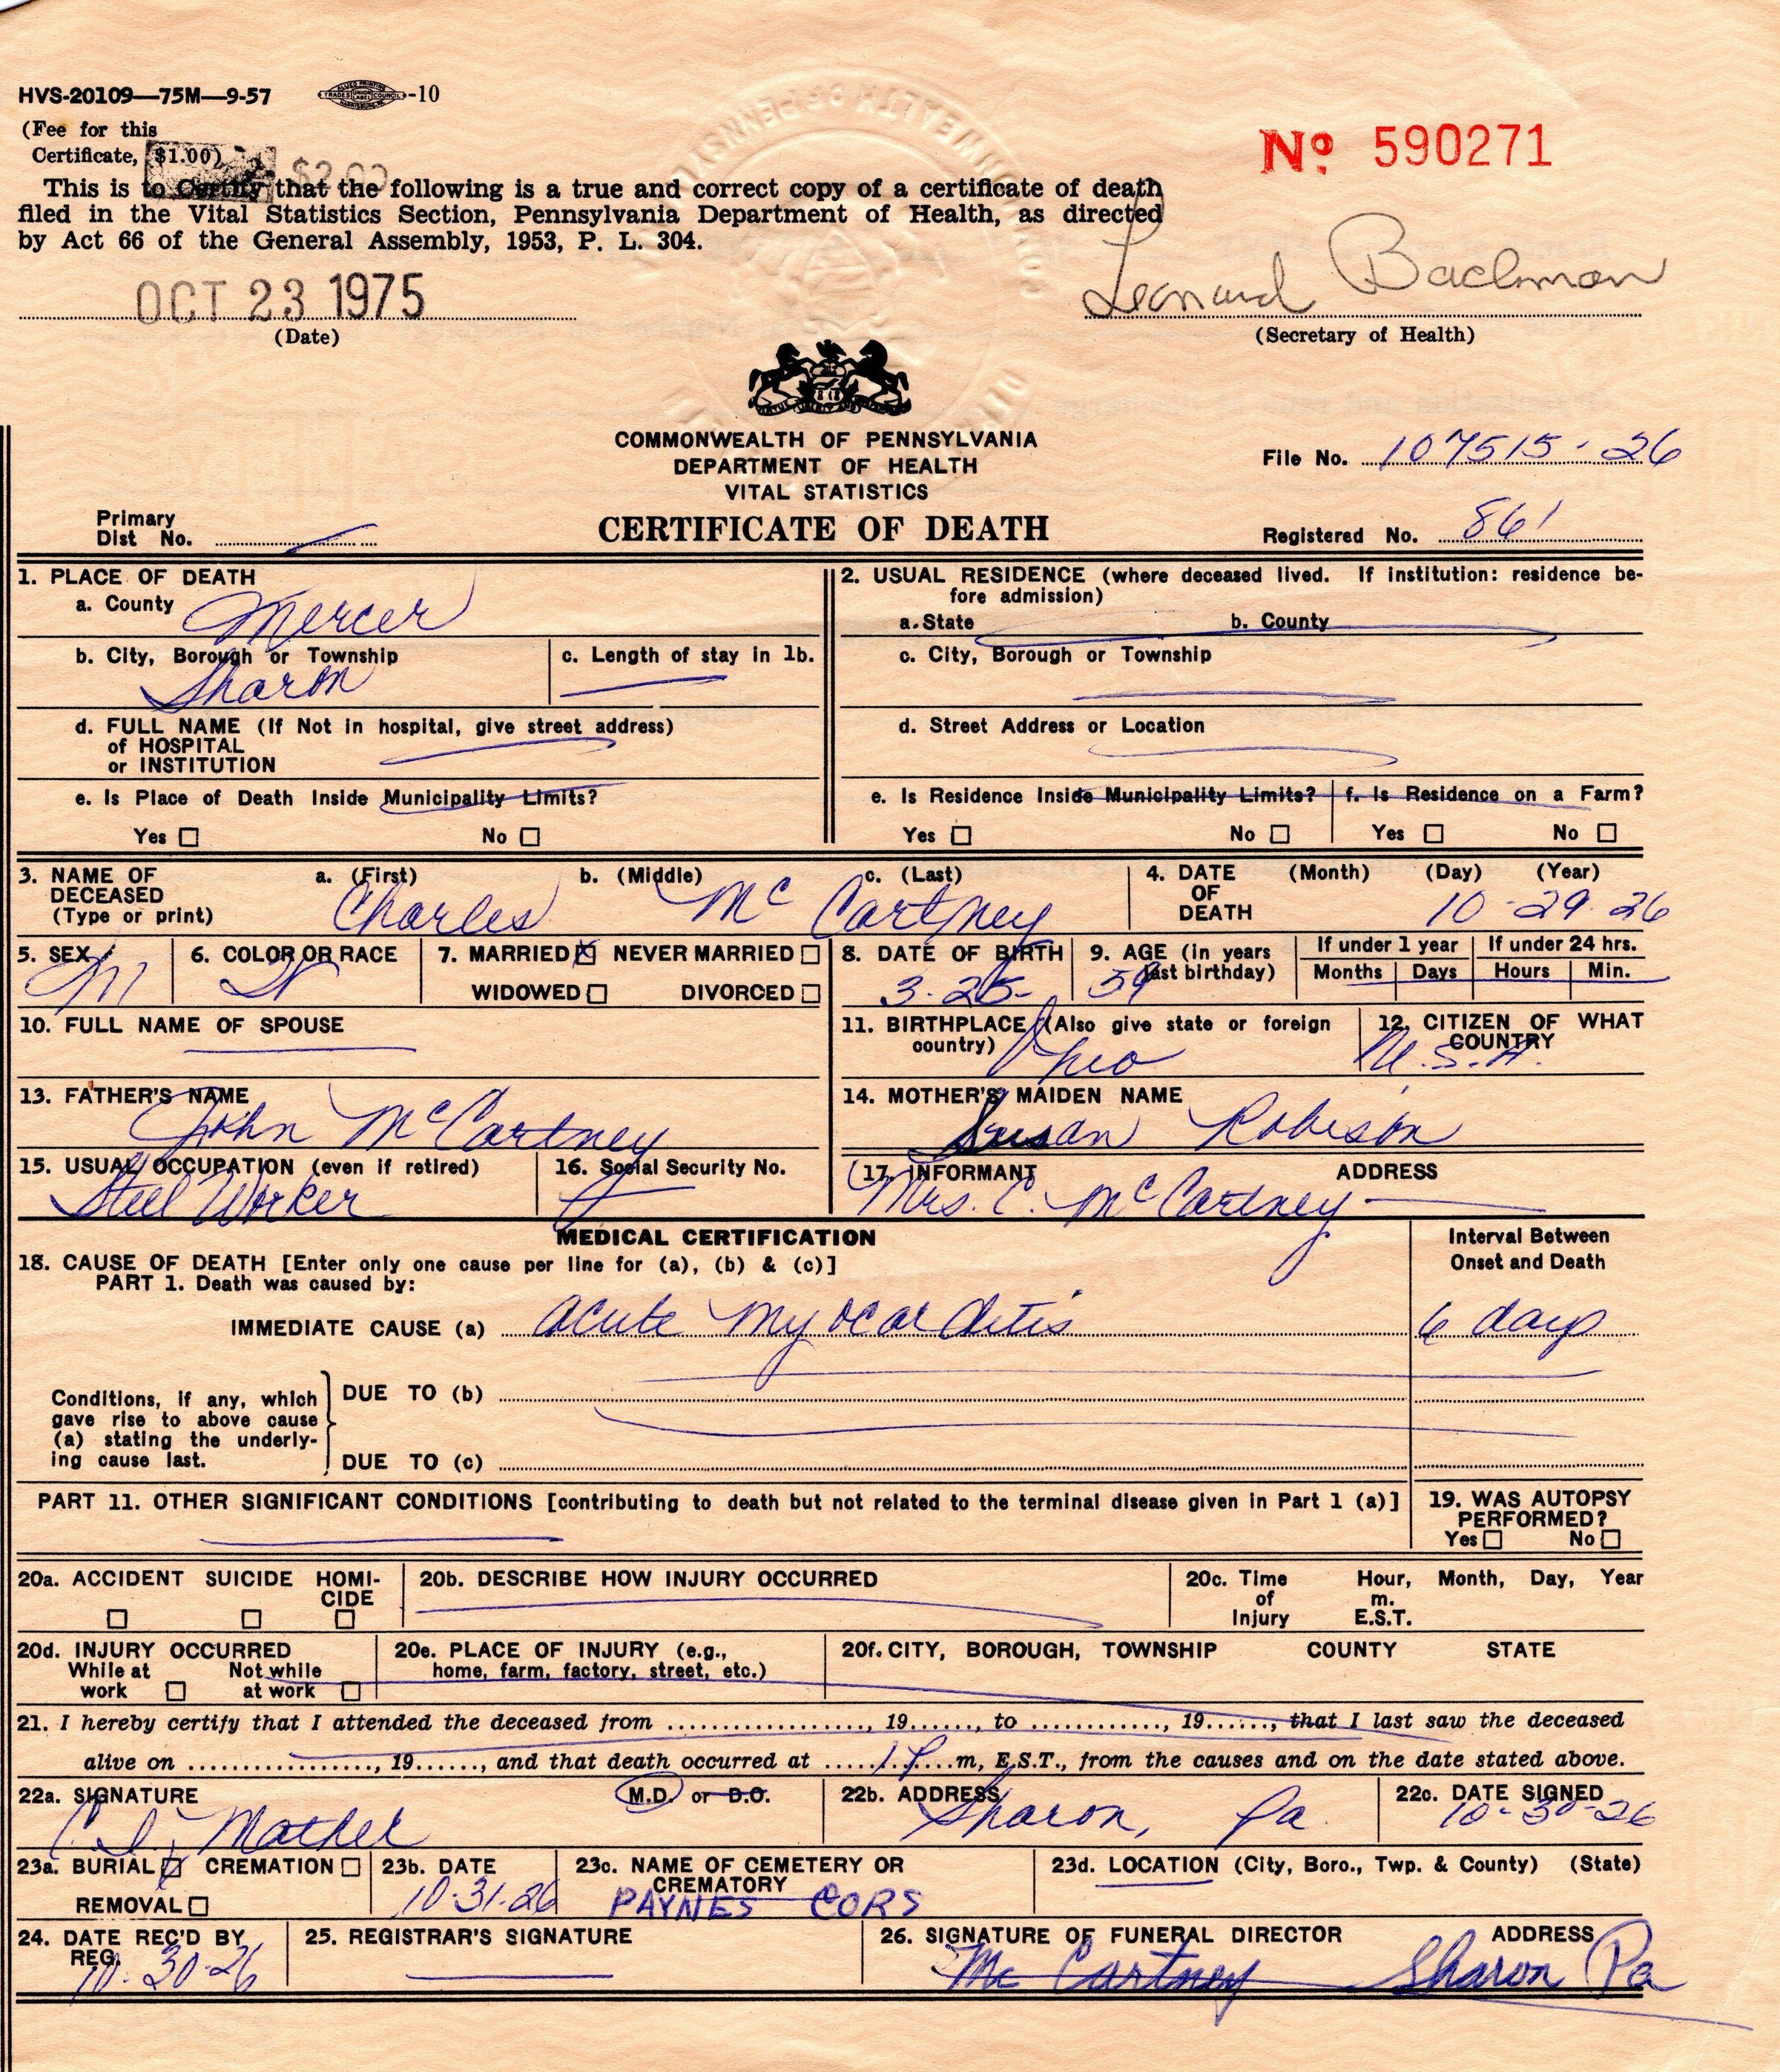 HVS-20109—75M—9-57 -10
(Fee for this
Certificate, $1.00) $2.00
Nº 590271
This is to Certify that the following is a true and correct copy of a certificate of death
filed in the Vital Statistics Section, Pennsylvania Department of Health, as directed
by Act 66 of the General Assembly, 1953, P. L. 304.
OCT 23 1975 Leonard Bachman
(Date) (Secretary of Health)
COMMONWEALTH OF PENNSYLVANIA
DEPARTMENT OF HEALTH
VITAL STATISTICS
File No. 107515-26
Primary
Dist No.
CERTIFICATE OF DEATH
Registered No. 861
1. PLACE OF DEATH
a. County Mercer
2. USUAL RESIDENCE (where deceased lived. If institution: residence be-
fore admission)
a. State b. County
b. City, Borough or Township Sharon
c. Length of stay in 1b.
c. City, Borough or Township
d. FULL NAME (If Not in hospital, give street address)
of HOSPITAL
or INSTITUTION
d. Street Address or Location
e. Is Place of Death Inside Municipality Limits?
Yes No
e. Is Residence Inside Municipality Limits?
Yes No
f. Is Residence on a Farm?
Yes No
3. NAME OF
DECEASED
(Type or print)
a. (First) b. (Middle) c. (Last)
Charles McCartney
4. DATE
OF
DEATH
(Month) (Day) (Year)
10-29-26
5. SEX M
6. COLOR OR RACE W
7. MARRIED NEVER MARRIED
WIDOWED DIVORCED
8. DATE OF BIRTH
3-25-
9. AGE (in years
last birthday)
59
If under 1 year If under 24 hrs.
Months Days Hours Min.
10. FULL NAME OF SPOUSE
11. BIRTHPLACE (Also give state or foreign
country) Ohio
12. CITIZEN OF WHAT
COUNTRY
U.S.A.
13. FATHER'S NAME
John McCartney
14. MOTHER'S MAIDEN NAME
Susan Robison
15. USUAL OCCUPATION (even if retired)
Steel Worker
16. Social Security No.
17. INFORMANT ADDRESS
Mrs. C. McCartney
MEDICAL CERTIFICATION
18. CAUSE OF DEATH [Enter only one cause per line for (a), (b) & (c)]
PART 1. Death was caused by:
Interval Between
Onset and Death
IMMEDIATE CAUSE (a) acute myocarditis 6 days
Conditions, if any, which
gave rise to above cause
(a) stating the underly-
ing cause last.
DUE TO (b)
DUE TO (c)
PART 11. OTHER SIGNIFICANT CONDITIONS [contributing to death but not related to the terminal disease given in Part 1 (a)]
19. WAS AUTOPSY
PERFORMED?
Yes No
20a. ACCIDENT SUICIDE HOMI-
CIDE
20b. DESCRIBE HOW INJURY OCCURRED
20c. Time
of
Injury
Hour, Month, Day, Year
m.
E.S.T.
20d. INJURY OCCURRED
While at
work
Not while
at work
20e. PLACE OF INJURY (e.g.,
home, farm, factory, street, etc.)
20f. CITY, BOROUGH, TOWNSHIP COUNTY STATE
21. I hereby certify that I attended the deceased from ..................., 19......, to ............, 19......, that I last saw the deceased
alive on .................., 19......, and that death occurred at ..... 1 P ....m, E.S.T., from the causes and on the date stated above.
22a. SIGNATURE M.D. or D.O.
Mather
22b. ADDRESS
Sharon, Pa.
22c. DATE SIGNED
10-30-26
23a. BURIAL CREMATION
REMOVAL
23b. DATE
10-31-26
23c. NAME OF CEMETERY OR
CREMATORY
PAYNES CORS
23d. LOCATION (City, Boro., Twp. & County) (State)
24. DATE REC'D BY
REG.
10-30-26
25. REGISTRAR'S SIGNATURE
26. SIGNATURE OF FUNERAL DIRECTOR ADDRESS
McCartney Sharon Pa